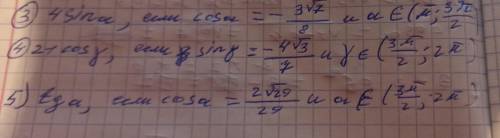 ③ 4 sin a, если cos a = - 3√7/8 и a ∈ (π; 3π/2
④ 21 cos γ, если sin γ = -4√3/7 и γ ∈ (3π/2; 2π
5) tg a, если cos a = 2√29/29 и a ∈ (3π/2; 2π